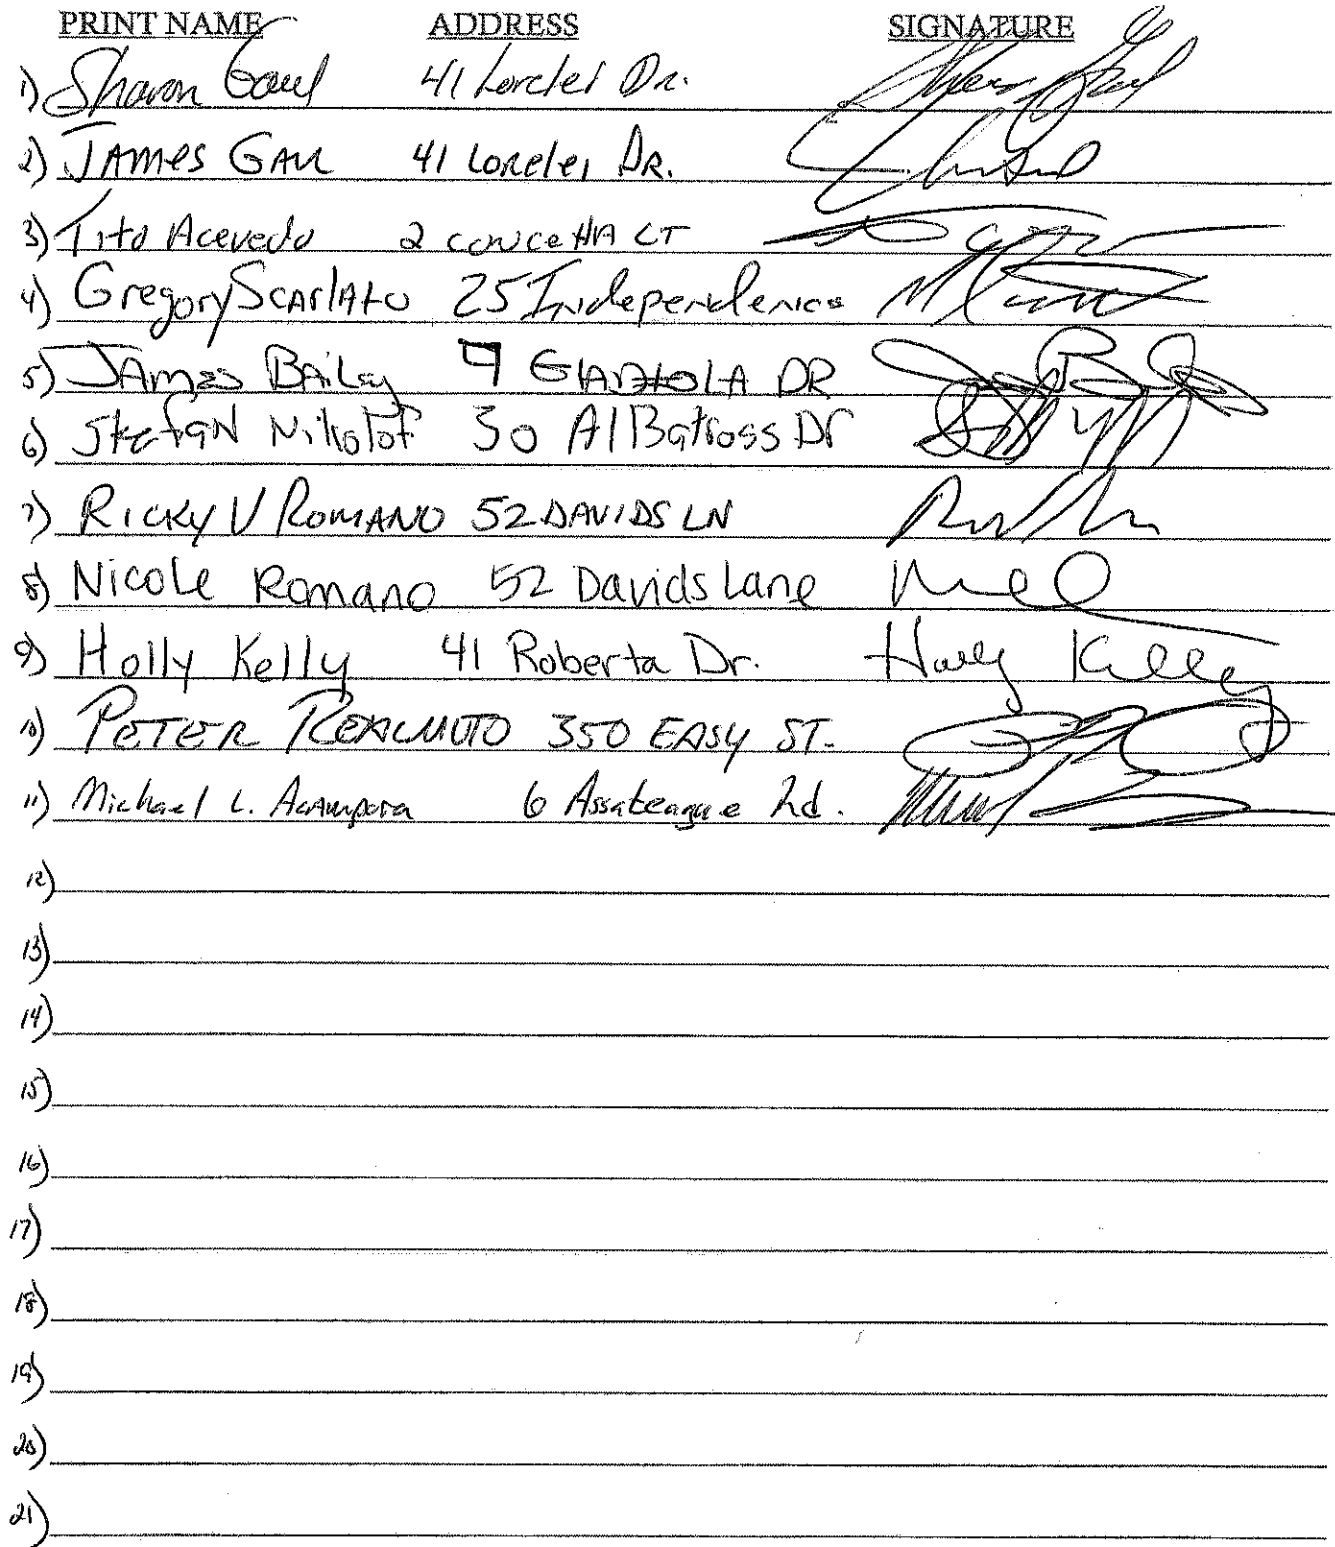 PRINT NAME ADDRESS SIGNATURE
1) Sharon Gaul 41 Lorelei Dr.
2) JAMES GAUL 41 Lorelei DR.
3) Tito Acevedo 2 concetta CT
4) Gregory Scarlato 25 Independence
5) JAMES BAILey 9 GLADIOLA DR
6) Stefan Nikolof 30 AlBatross Dr
7) RICKY V ROMANO 52 DAVIDS LN
8) Nicole Romano 52 Davids Lane
9) Holly Kelly 41 Roberta Dr. Holly Kelley
10) PETER REALMUTO 350 EASY ST.
11) Michael L. Acampora 6 Assateague Rd.
12)
13)
14)
15)
16)
17)
18)
19)
20)
21)